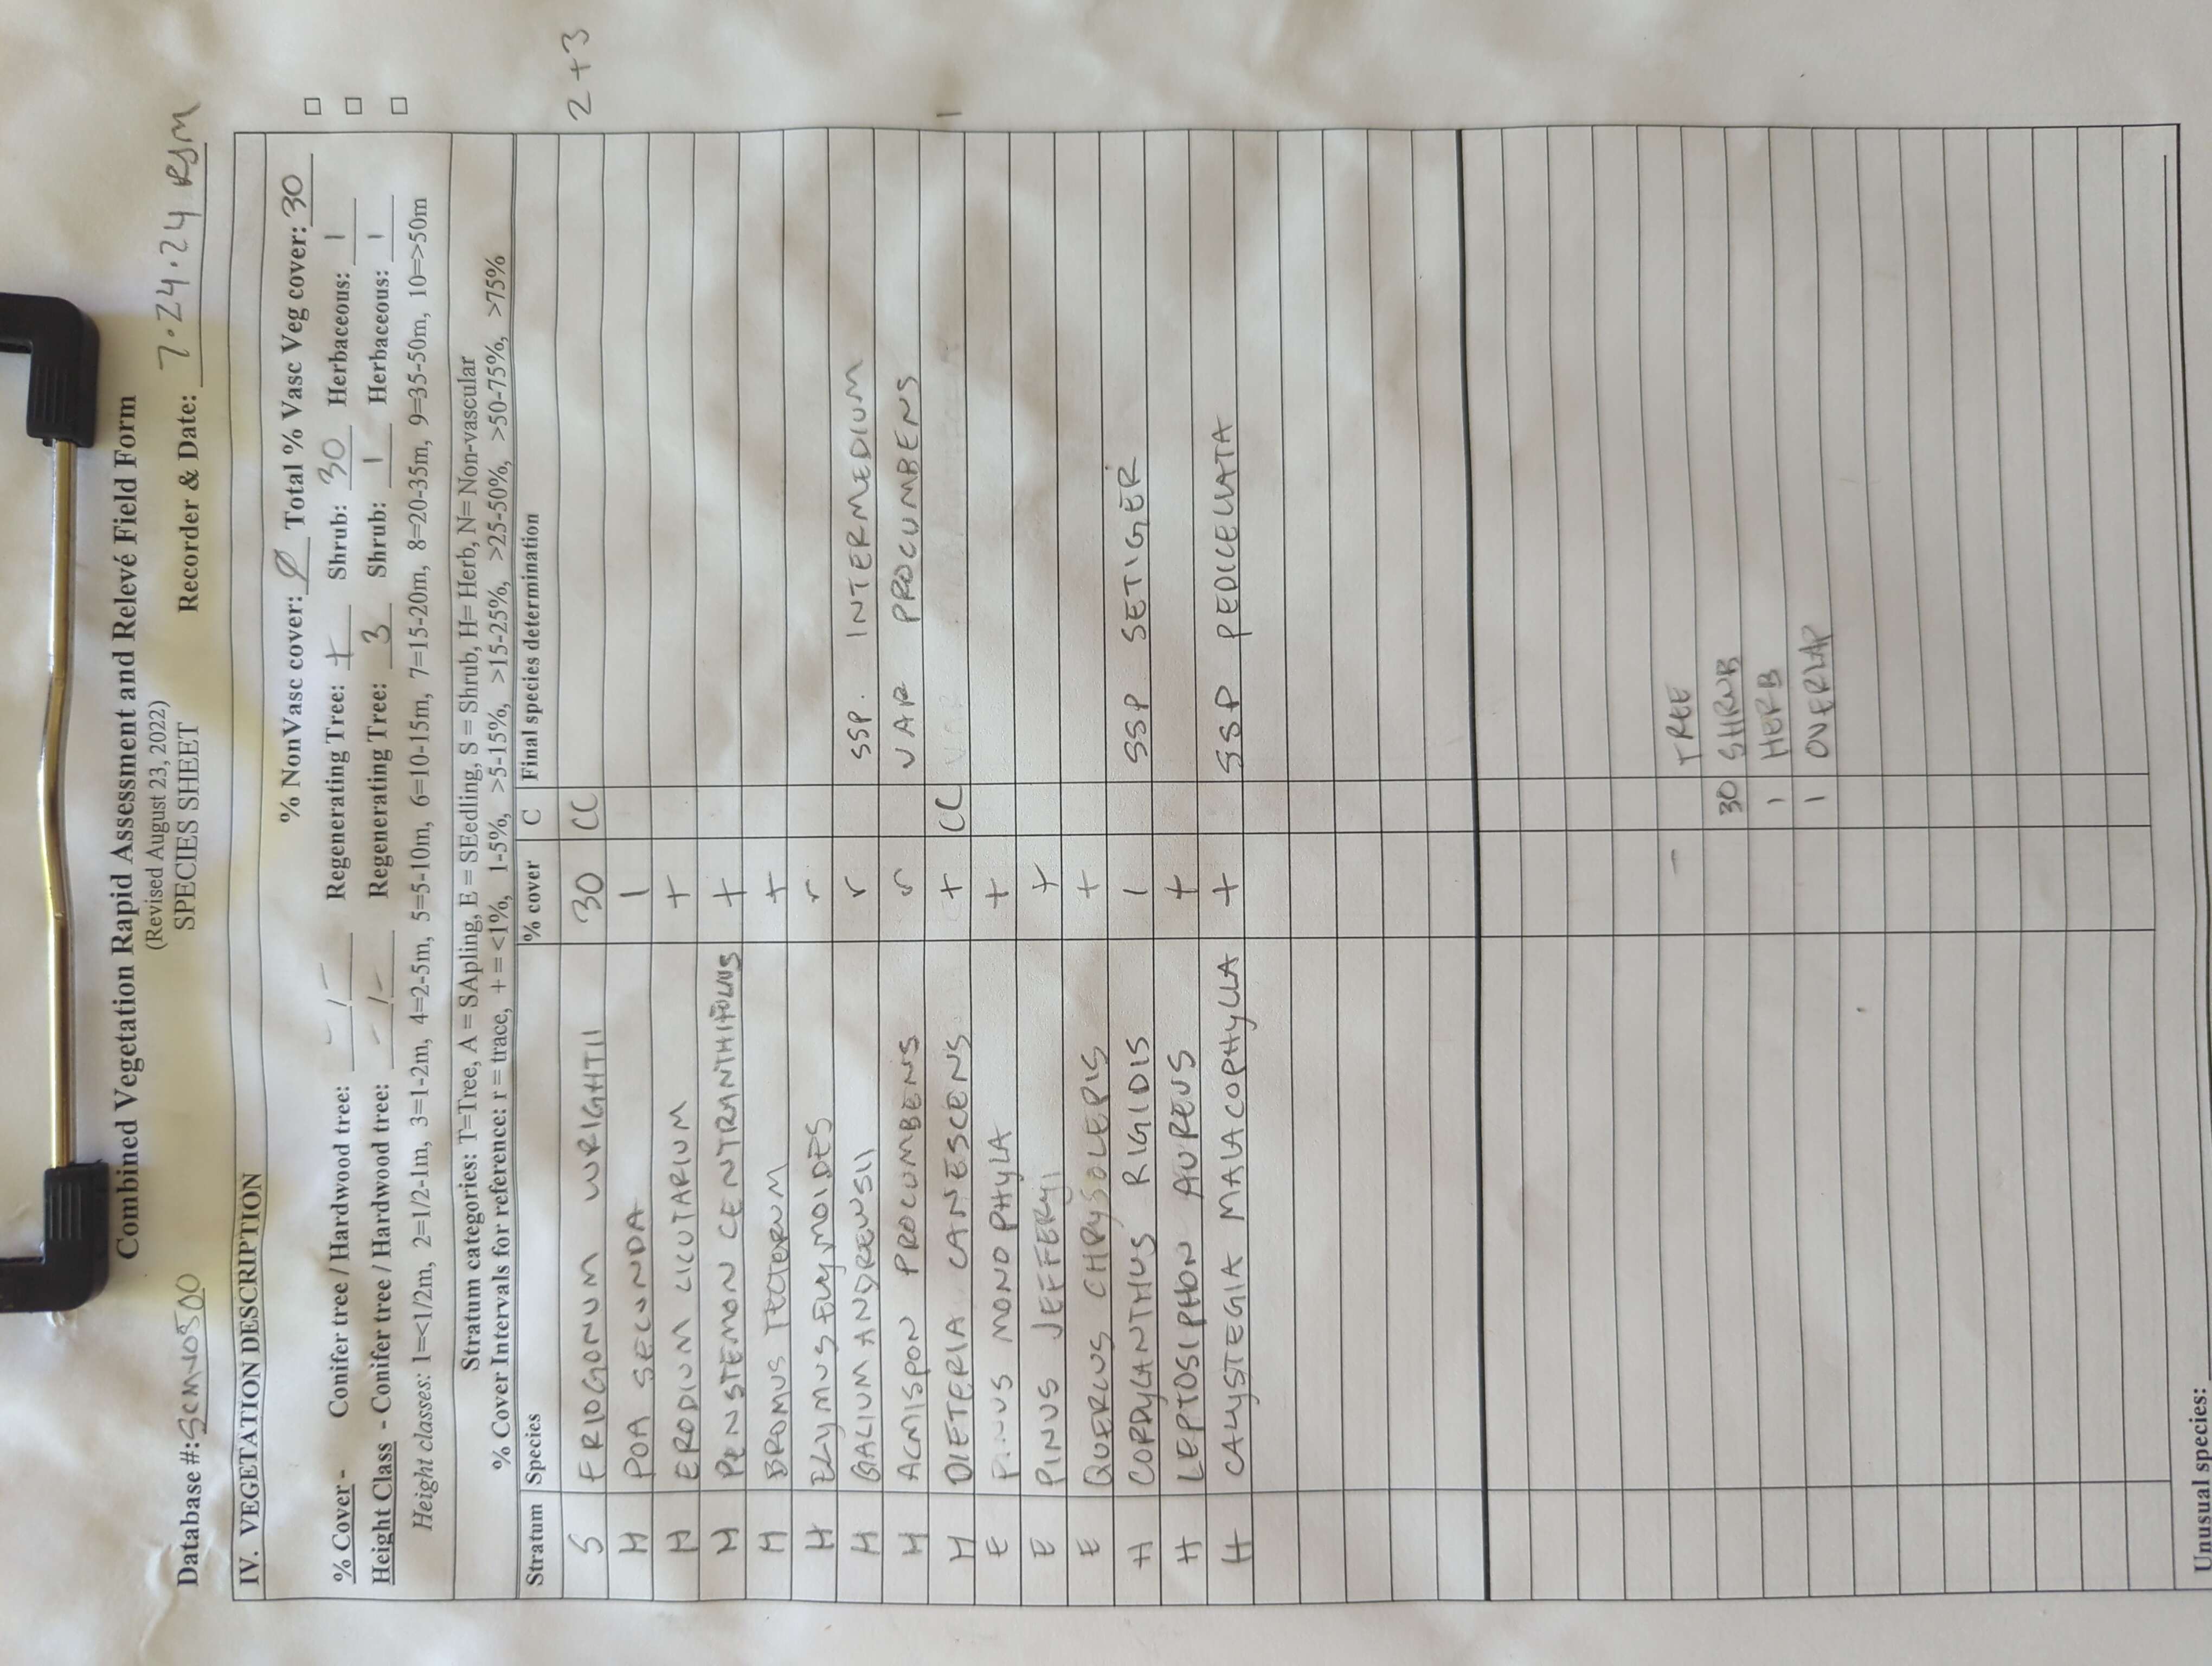 Combined Vegetation Rapid Assessment and Relevé Field Form
(Revised August 23, 2022)
SPECIES SHEET
Database #: SCMN0500 Recorder & Date: 7.24.24 RJM
IV. VEGETATION DESCRIPTION
% NonVasc cover: Ø Total % Vasc Veg cover: 30 □
% Cover - Conifer tree / Hardwood tree: - / - Regenerating Tree: + Shrub: 30 Herbaceous: 1 □
Height Class - Conifer tree / Hardwood tree: - / - Regenerating Tree: 3 Shrub: 1 Herbaceous: 1 □
Height classes: 1=<1/2m, 2=1/2-1m, 3=1-2m, 4=2-5m, 5=5-10m, 6=10-15m, 7=15-20m, 8=20-35m, 9=35-50m, 10=>50m
Stratum categories: T=Tree, A = SApling, E = SEedling, S = Shrub, H= Herb, N= Non-vascular
% Cover Intervals for reference: r = trace, + = <1%, 1-5%, >5-15%, >15-25%, >25-50%, >50-75%, >75%
Stratum Species % cover C Final species determination
S ERIOGONUM WRIGHTII 30 CC 2+3
H POA SECUNDA 1
H ERODIUM CICUTARIUM +
H PENSTEMON CENTRANTHIFOLIUS +
H BROMUS TECTORUM +
H ELYMUS ELYMOIDES r
H GALIUM ANDREWSII r SSP. INTERMEDIUM
H ACMISPON PROCUMBENS r VAR PROCUMBENS
H DIETERIA CANESCENS + CC 1
E PINUS MONOPHYLLA +
E PINUS JEFFERYI +
E QUERCUS CHRYSOLEPIS +
H CORDYLANTHUS RIGIDIS 1 SSP SETIGER
H LEPTOSIPHON AUREUS +
H CALYSTEGIA MALACOPHYLLA + SSP PEDICELLATA
- TREE
30 SHRUB
1 HERB
1 OVERLAP
Unusual species: